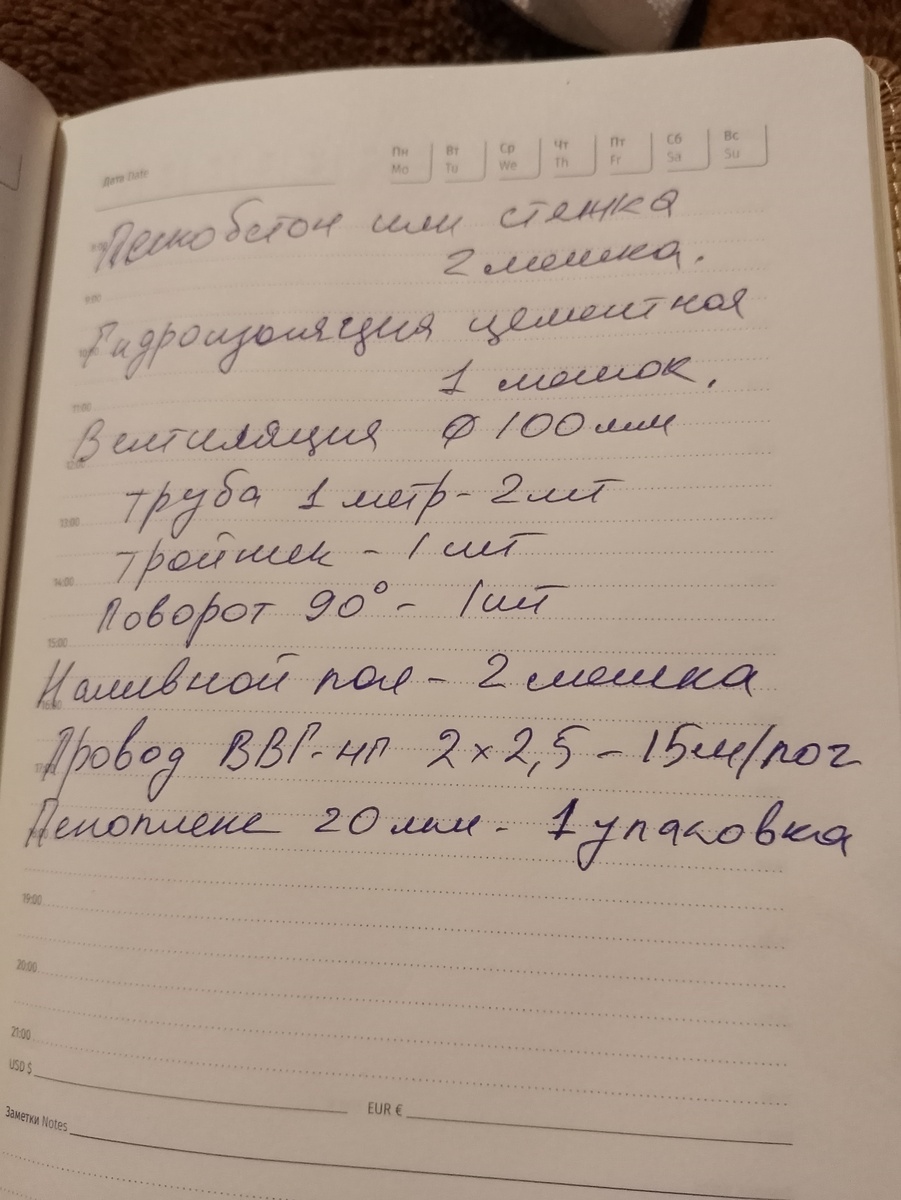 Дата Date
Пн Вт Ср Чт Пт Сб Вс
Mo Tu We Th Fr Sa Su
Пескобетон или стяжка
2 мешка.
9:00
Гидроизоляция цементная
1 мешок.
11:00
Вентиляция Ø 100 мм
12:00
труба 1 метр - 2 шт
13:00
тройник - 1 шт
14:00
Поворот 90° - 1 шт
15:00
Наливной пол - 2 мешка
Провод ВВГ-нг 2×2,5 - 15м/пог
Пеноплекс 20 мм - 1 упаковка
19:00
20:00
21:00
USD $ EUR €
Заметки Notes